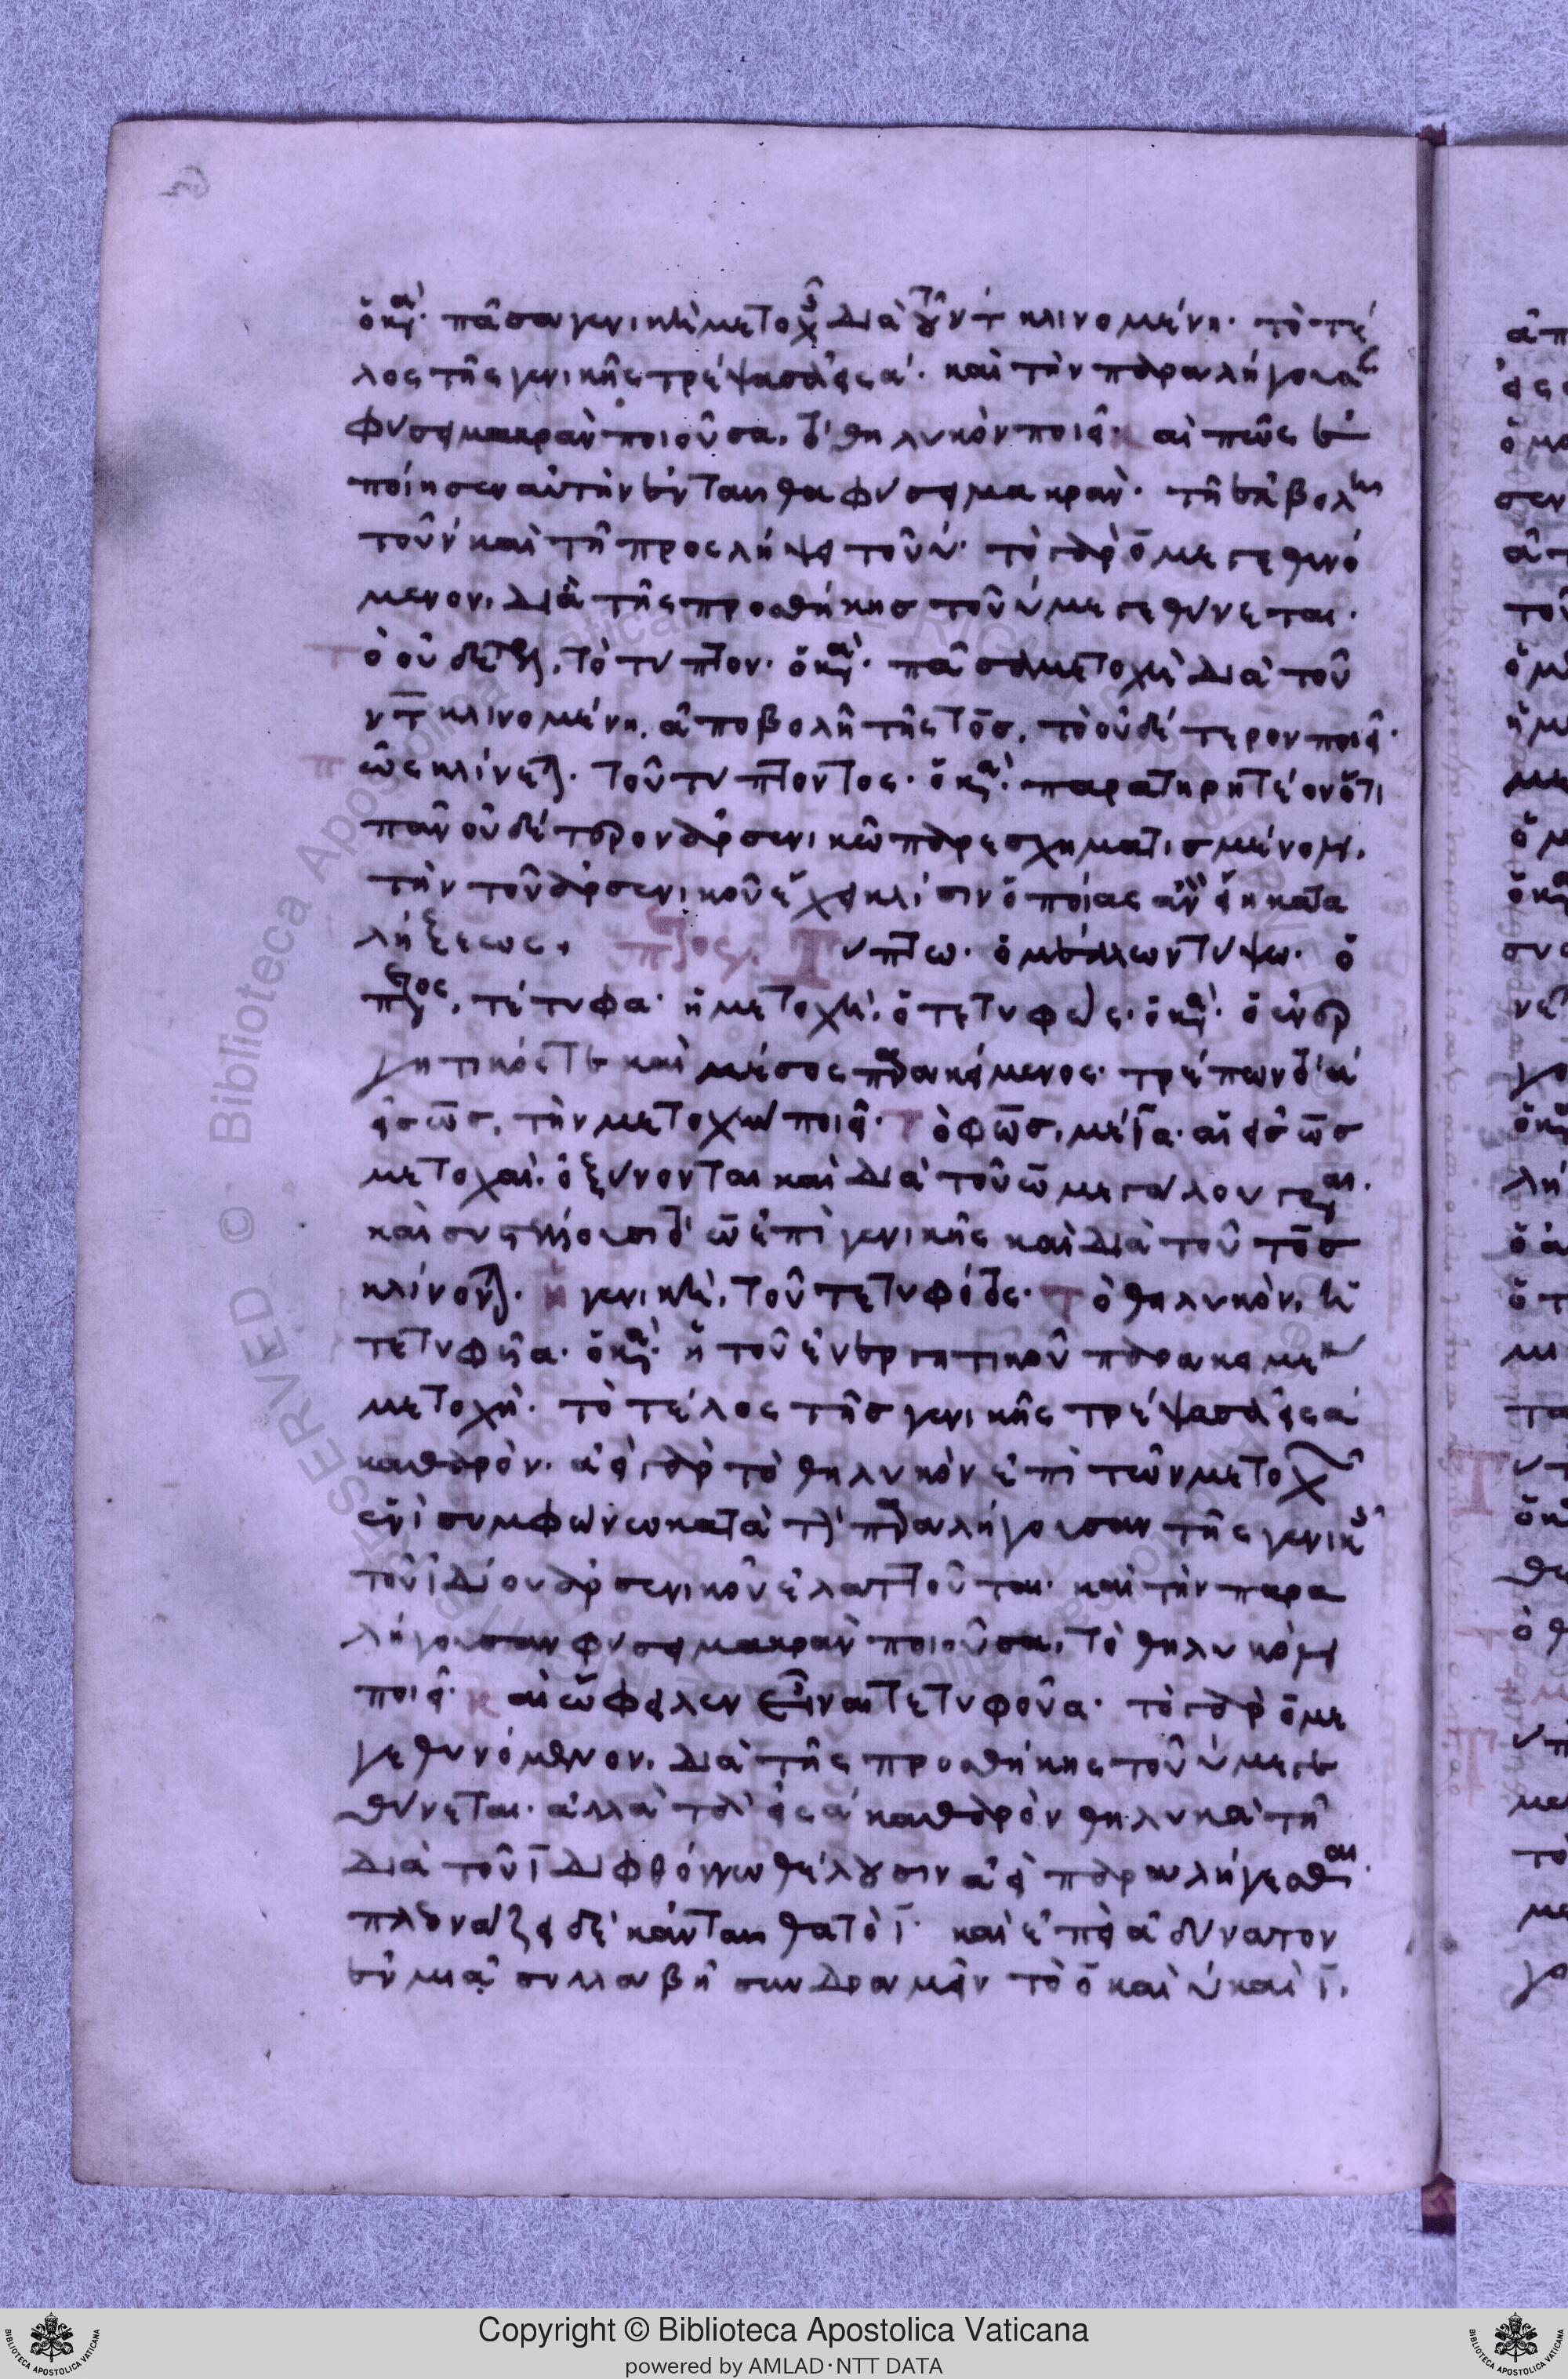 ὁ κα(νών)· πᾶσα γενικὴ μετοχῆς διὰ τοῦ ντ κλινομένη· τὸ τέ
λος τῆς γενικῆς τρέψασα εἰς α· καὶ τὴν παραλήγουσαν
φύσει μακρὰν ποιοῦσα, τὸ θηλυκὸν ποιεῖ· καὶ πῶς ἐ
ποίησεν αὐτὴν ἐνταῦθα φύσει μακράν· τῇ ἐκβολῇ
τοῦ ν καὶ τῇ προσλήψει τοῦ υ· τὸ γὰρ ο μεγεθυνό
μενον, διὰ τῆς προσθήκης τοῦ υ μεγεθύνεται·
Τὸ οὐδέτερον, τὸ τύπτον· ὁ κα(νών)· πᾶσα μετοχὴ διὰ τοῦ
ντ κλινομένη, ἀποβολῇ τῆς τος, τὸ οὐδέτερον ποιεῖ·
Πῶς κλίνεται· τοῦ τύπτοντος· ὁ κα(νών)· παρατηρητέον ὅτι
πᾶν οὐδέτερον ἀρσενικῷ παρεσχηματισμένον,
τὴν τοῦ ἀρσενικοῦ ἔχει κλίσιν ὁποίας ἂν εἴη κατα
λήξεως. Τύπτω· ὁ μέλλων τύψω· ὁ
τέτυφα· ἡ μετοχή, ὁ τετυφώς· ὁ κα(νών)· ὁ ἐνερ
γητικός τε καὶ μέσος παρακείμενος· τρέπων τὸ α
εἰς ως, τὴν μετοχὴν ποιεῖ· Τὸ φως, μέγα· αἱ εἰς ως
μετοχαὶ ὀξύνονται καὶ διὰ τοῦ ω μεγάλου
καὶ συστέλλουσι τὸ ω ἐπὶ γενικῆς καὶ διὰ τοῦ τος
κλίνονται. ἡ γενική, τοῦ τετυφότος· Τὸ θηλυκόν, ἡ
τετυφυῖα· ὁ κα(νών)· ἡ τοῦ ἐνεργητικοῦ παρακειμένου
μετοχή· τὸ τέλος τῆς γενικῆς τρέψασα εἰς α
καθαρόν· ἀεὶ γὰρ τὸ θηλυκὸν ἐπὶ τῶν μετοχῶν
ἑνὶ συμφώνῳ κατὰ τὴν παραλήγουσαν τῆς γενικῆς
τοῦ ἰδίου ἀρσενικοῦ ἐλαττοῦται· καὶ τὴν παρα
λήγουσαν φύσει μακρὰν ποιοῦσα, τὸ θηλυκὸν
ποιεῖ· καὶ ὤφειλεν εἶναι τετυφοῦα· τὸ γὰρ ο με
γεθυνόμενον, διὰ τῆς προσθήκης τοῦ υ μεγε
θύνεται· ἀλλὰ τὰ εἰς α καθαρὸν θηλυκὰ τῇ
διὰ τοῦ ι διφθόγγῳ θέλουσιν ἀεὶ παραλήγεσθαι·
πλεονάζει δὲ κἀνταῦθα τὸ ι· καὶ ἐπεὶ ἀδύνατον
ἐν μιᾷ συλλαβῇ συνδραμεῖν τὸ ο καὶ υ καὶ ι,
Copyright © Biblioteca Apostolica Vaticana
powered by AMLAD·NTT DATA